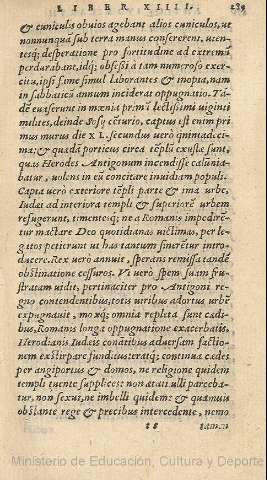 LIBER XIIII. 239
& cuniculis obuios agebant alios cuniculos, ut
nonnunquã sub terra manus consererent, uten-
tesq; desperatione pro fortitudine ad extremũ
perdurabant, idq; obsessi à tam numeroso exer-
citu, ipsi fame simul laborantes & inopia, nam
in sabbaticũ annum inciderat oppugnatio. Tã-
dẽ euaserunt in mœnia primũ lectissimi uiginti
milites, deinde Sosij cẽturio, captus est enim pri
mus murus die XL. secundus uerò quinradeci-
ma: & quædã porticus circa tẽplũ exustæ sunt,
quas Herodes Antigonum incendisse calũnia-
batur, uolens in eũ concitare inuidiam populi.
Capta uerò exteriore tẽpli parte & ima urbe,
Iudæi ad interiora templi & superiorẽ urbem
refugerunt, timentesq; ne à Romanis impediren-
tur mactare Deo quotidianas uictimas, per le-
gatos petierunt ut has tantum sineretur intro-
ducere. Rex uerò annuit, sperans remissa tandẽ
obstinatione cessuros. Vt uerò spem suam fru-
stratam uidit, pertinaciter pro Antigoni re-
gno contendentibus, totis uiribus adortus urbẽ
expugnauit, moxq; omnia repleta sunt cædi-
bus, Romanis longa oppugnatione exacerbatis,
Herodianis Iudæis conatibus aduersam factio-
nem exstirpare funditus: eratq; continua cædes
per angiportus & domos, ne religione quidem
templi tuente supplices: non ætati ulli parceba-
tur, non sexui, ne imbelli quidem: & quamuis
obstante rege & precibus intercedente, nemo
Ministerio de Educación, Cultura y Deporte